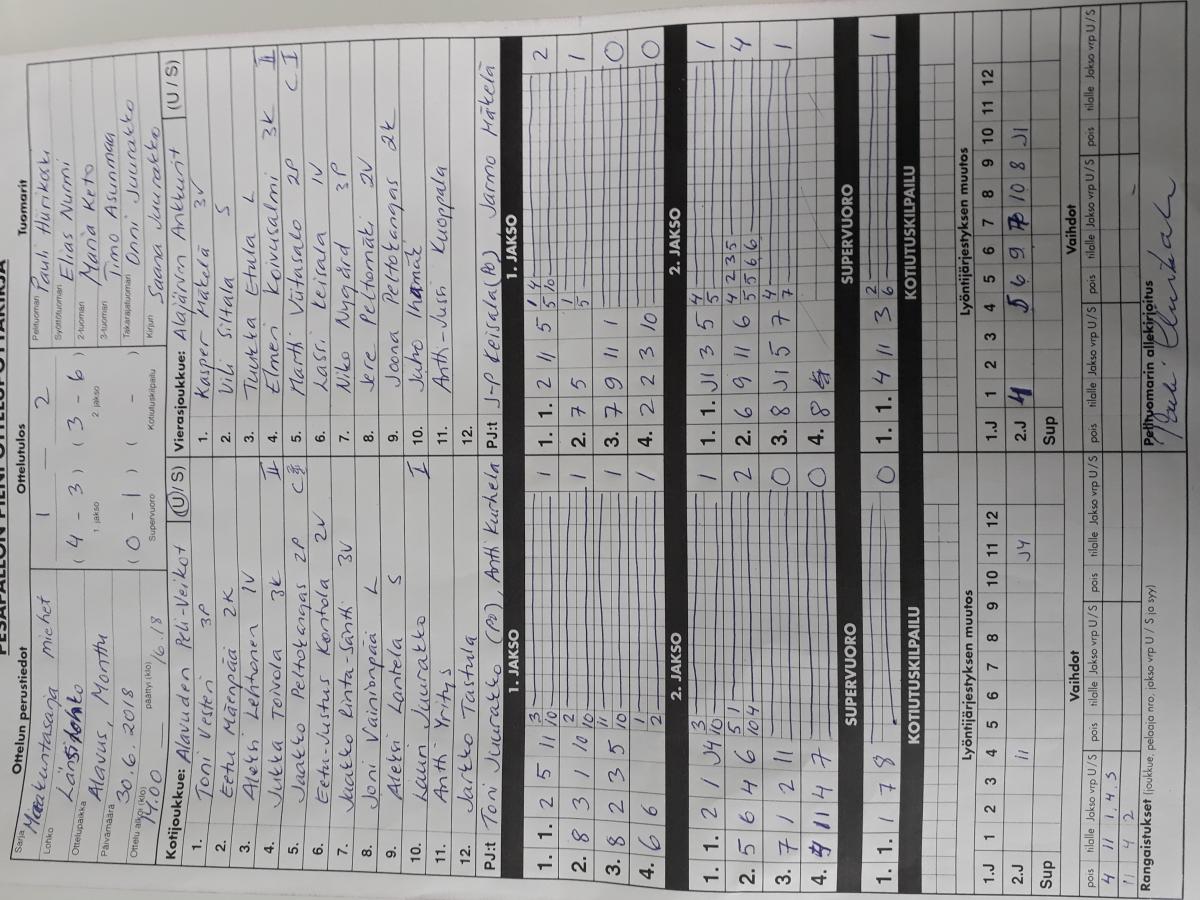 PESÄPALLON PIENI OTTELUPÖYTÄKIRJA
Ottelun perustiedot
Ottelutulos
Tuomarit
Sarja Maakuntasarja miehet
Lohko Länsilohko
Ottelupaikka Alavus, Monttu
Päivämäärä 30.6.2018
Ottelu alkoi (klo) 14.00 päättyi (klo) 16.18
1 — 2
( 4 - 3 ) ( 3 - 6 )
1. jakso 2. jakso
( 0 - 1 ) ( - )
Supervuoro Kotiutuskilpailu
Pelituomari Pauli Hurikaski
Syöttötuomari Elias Nurmi
2-tuomari Maria Keto
3-tuomari Timo Asunmaa
Takarajatuomari Onni Juurakko
Kirjuri Saana Juurakko
Kotijoukkue: Alavuden Peli-Veikot (U/S)
1. Toni Vesteri 3P
2. Eetu Mäenpää 2K
3. Aleksi Lehtonen 1V
4. Jukka Toivola 3K II
5. Jaakko Peltokangas 2P C
6. Eetu-Justus Kontola 2V
7. Jaakko Rinta-Säntti 3V
8. Joni Vainionpää L
9. Aleksi Lantela S
10. Lauri Juurakko I
11. Antti Yritys
12. Jarkko Tastula
PJ:t Toni Juurakko (PJ), Antti Kurhela
Vierasjoukkue: Alajärven Ankkurit (U/S)
1. Kasper Mäkelä 3V
2. Vili Siltala S
3. Tuukka Etula L
4. Elmeri Koivusalmi 3K II
5. Martti Viitasalo 2P C I
6. Lassi Keisala 1V
7. Niko Nygård 3P
8. Jere Peltomäki 2V
9. Joona Peltokangas 2K
10. Juho
11. Antti-Jussi Kuoppala
12.
PJ:t J-P Keisala (PJ), Jarmo Mäkelä
1. JAKSO
1. 1. 2 5 11 3/10 1
2. 8 3 1 10 2/10 1
3. 8 2 3 5 11/10 1
4. 6 6 1/2 1
2. JAKSO
1. 1. 2 1 J4 3/10 1
2. 5 6 4 6 5/10 1/4 2
3. 7 1 2 11 0
4. 11 4 7 0
SUPERVUORO
1. 1. 1 7 8 0
KOTIUTUSKILPAILU
1. JAKSO
1. 1. 2 11 5 1/5 4/10 2
2. 7 5 1/5 1
3. 7 9 11 1 0
4. 2 2 3 10 0
2. JAKSO
1. 1. J1 3 5 4/5 1
2. 6 9 11 6 4/5 2/5 3/6 5/6 4
3. 8 J1 5 7 4/7 1
4. 8
SUPERVUORO
1. 1. 4 11 3 2/6 1
KOTIUTUSKILPAILU
Lyöntijärjestyksen muutos
1.J 1 2 3 4 5 6 7 8 9 10 11 12
2.J 11 J4
Sup
Lyöntijärjestyksen muutos
1.J 1 2 3 4 5 6 7 8 9 10 11 12
2.J 4 5 6 9 7 10 8 J1
Sup
Vaihdot
pois tilalle Jakso vrp U/S pois tilalle Jakso vrp U/S pois tilalle Jakso vrp U/S
4 11 1.4.5
11 4 2
Vaihdot
pois tilalle Jakso vrp U/S pois tilalle Jakso vrp U/S pois tilalle Jakso vrp U/S
Rangaistukset (joukkue, pelaaja nro, jakso vrp U / S ja syy)
Pelituomarin allekirjoitus